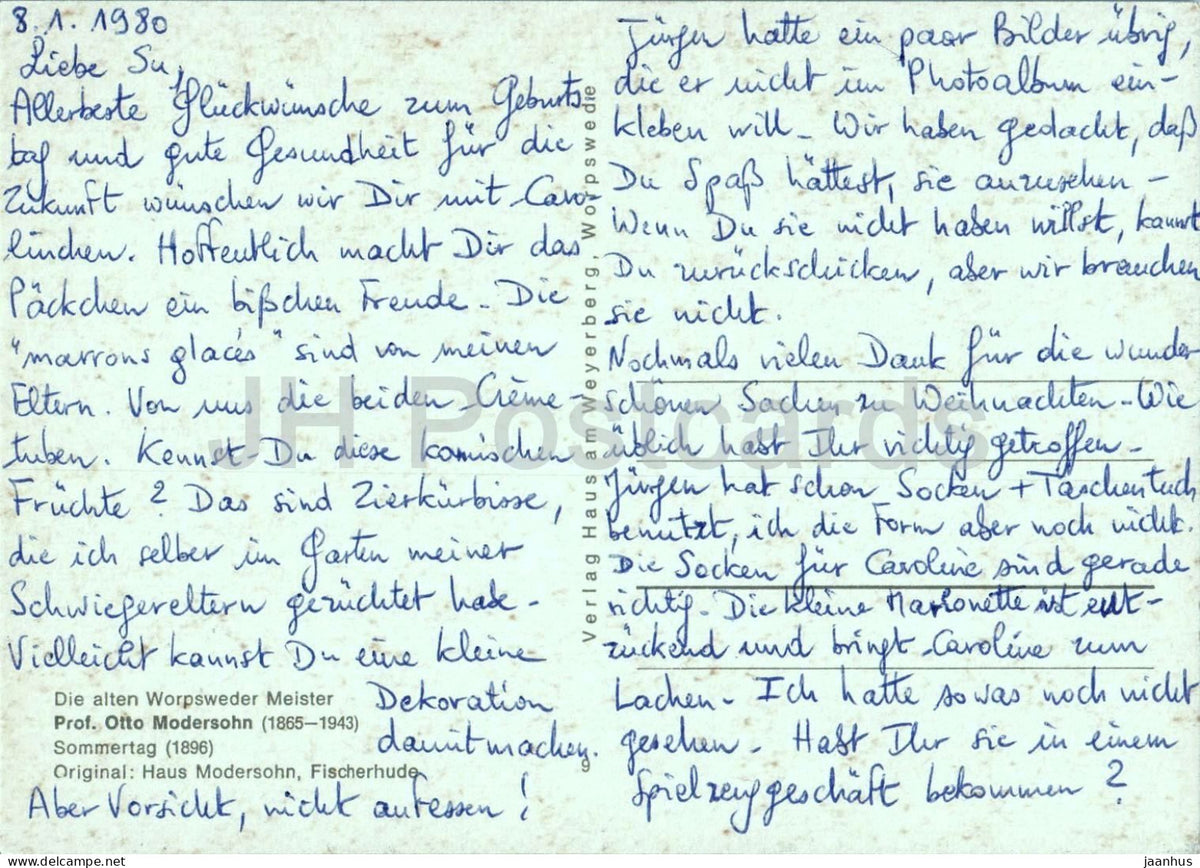 8.1.1980
Liebe Su,
Allerbeste Glückwünsche zum Geburts-
tag und gute Gesundheit für die
Zukunft wünschen wir Dir mit Caro-
linchen. Hoffentlich macht Dir das
Päckchen ein bißchen Freude. Die
"marrons glacés" sind von meinen
Eltern. Von uns die beiden Crème-
tuben. Kennst Du diese komischen
Früchte? Das sind Zierkürbisse,
die ich selber im Garten meiner
Schwiegereltern gezüchtet habe.
Vielleicht kannst Du eine kleine
Dekoration
damit machen.
Aber Vorsicht, nicht aufessen!
Die alten Worpsweder Meister
Prof. Otto Modersohn (1865—1943)
Sommertag (1896)
Original: Haus Modersohn, Fischerhude
Verlag Haus am Weyerberg, Worpswede
9
Jürgen hatte ein paar Bilder übrig,
die er nicht im Photoalbum ein-
kleben will. Wir haben gedacht, daß
Du Spaß hättest, sie anzusehen -
Wenn Du sie nicht haben willst, kannst
Du zurückschicken, aber wir brauchen
sie nicht.
Nochmals vielen Dank für die wunder
schönen Sachen zu Weihnachten. Wie
üblich habt Ihr richtig getroffen.
Jürgen hat schon Socken + Taschentuch
benutzt, ich die Form aber noch nicht.
Die Socken für Caroline sind gerade
richtig. Die kleine Marionette ist ent-
zückend und bringt Caroline zum
Lachen. Ich hatte sowas noch nicht
gesehen. Habt Ihr sie in einem
Spielzeuggeschäft bekommen?
JH Postcards
www.delcampe.net
jaanhus